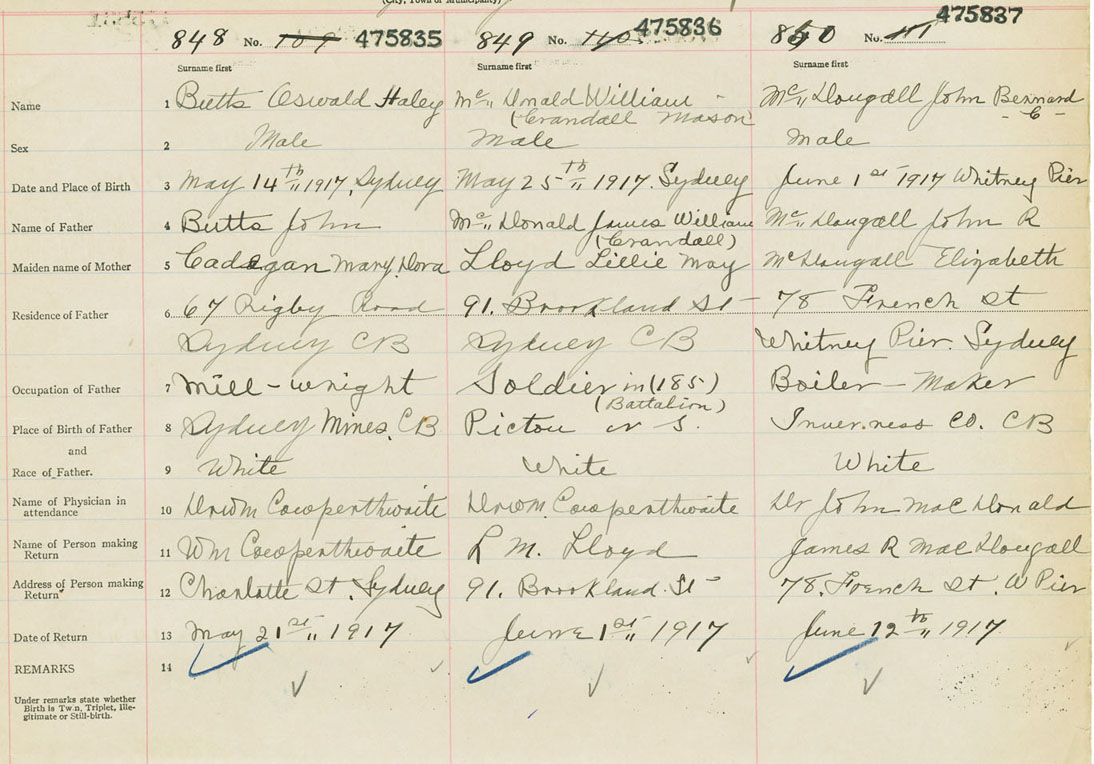 (City, Town or Municipality)
848 No. 109 475835
849 No. 110 475836
850 No. 111 475837
Surname first Surname first Surname first
Name 1 Butts Oswald Haley Mc„ Donald William - Mc„ Dougall John Bernard
(Crandall Mason) - C -
Sex 2 Male Male Male
Date and Place of Birth 3 May 14th„ 1917, Sydney May 25th„ 1917. Sydney June 1st 1917 Whitney Pier
Name of Father 4 Butts John Mc„ Donald James William Mc„ Dougall John R
(Crandall)
Maiden name of Mother 5 Cadegan Mary Dora Lloyd Lillie May McDougall Elizabeth
Residence of Father 6 67 Rigby Road 91. Brookland St - 78 French St
Sydney CB Sydney CB Whitney Pier. Sydney
Occupation of Father 7 Mill-wright Soldier in (185) Boiler - Maker
(Battalion)
Place of Birth of Father 8 Sydney Mines. CB Pictou N S. Inverness Co. CB
and
Race of Father. 9 White White White
Name of Physician in attendance 10 Dr Wm Cowperthwaite Dr Wm. Cowperthwaite Dr John Mac Donald
Name of Person making Return 11 Wm Cowperthwaite L M. Lloyd James R Mac Dougall
Address of Person making Return 12 Charlotte St. Sydney 91. Brookland St 78. French St. W Pier
Date of Return 13 May 21st„ 1917 June 1st„ 1917 June 12th„ 1917
REMARKS 14
Under remarks state whether
Birth is Twin, Triplet, Ille-
gitimate or Still-birth.